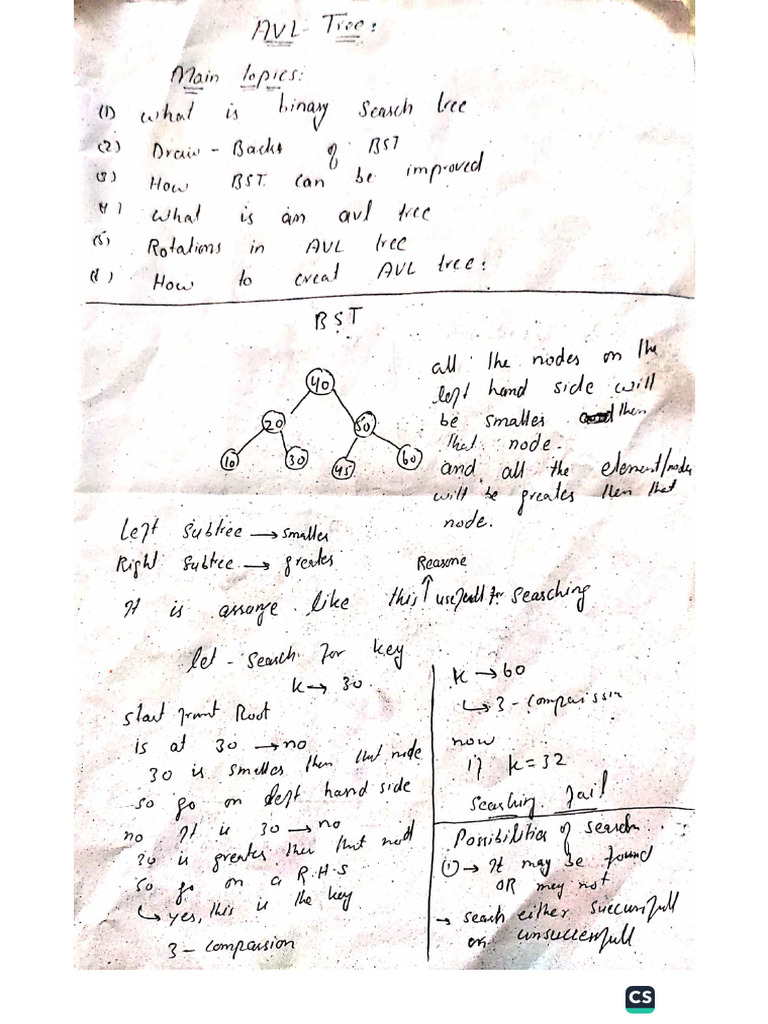 AVL-Tree:
Main topics:
(1) what is binary search tree
(2) Draw-Backs of BST
(3) How BST can be improved
(4) what is an avl tree
(5) Rotations in AVL tree
How to creat AVL tree:
BST
40
20
50
10
30
45
60
all the nodes on the
left hand side will
be smaller then
that node.
and all the element/nodes
will be greater then that
node.
Left Subtree → smaller
Right Subtree → greater
Reasone
It is arrange like this ↑ usefull for searching
let-search for key
k → 30
start from Root
is at 30 → no
30 is smaller then that node
so go on left hand side
no It is 30 → no
30 is greater then that node
so go on a R.H.S
↳ yes, this is the key
3-comparsion
k → 60
↳ 3-comparission
now
if k=32
searching fail
Possibilities of search
① → It may be found
OR mey not
→ search either successfull
or unsuccessfull
CS